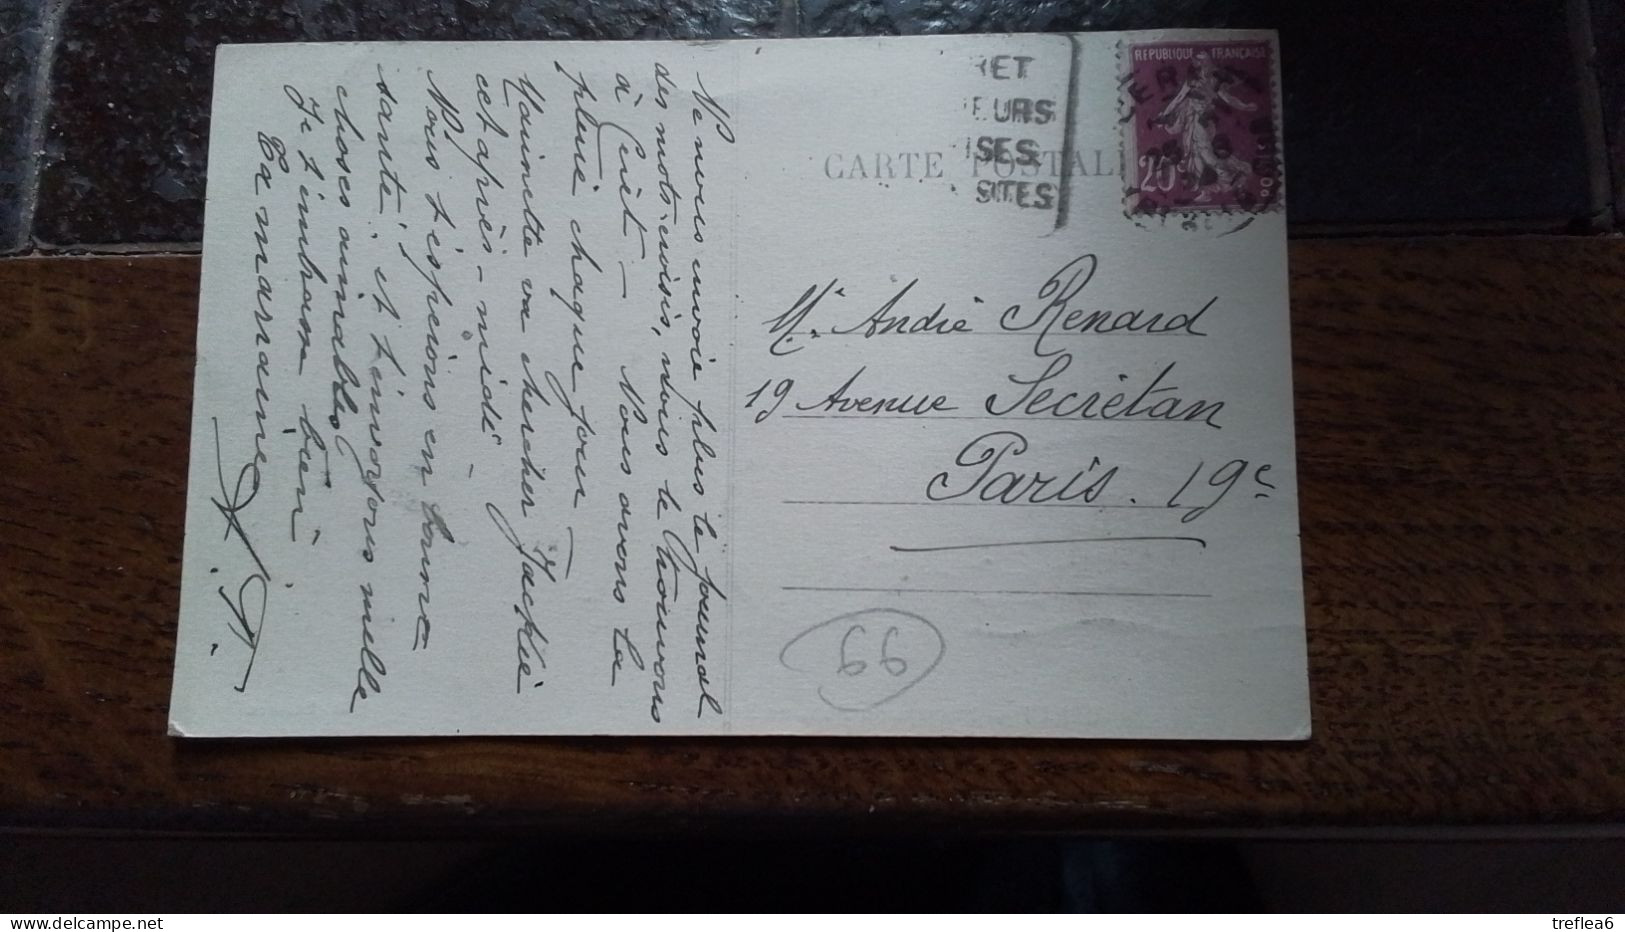 Ne nous envoie plus le journal
des mots croisés, nous le trouvons
à Crêt — Nous avons la
pluie chaque jour —
Mainette va chercher Jackie
cet après-midi —
Nous t'espérons en bonne
santé, et t'envoyons mille
choses aimables
Je t'embrasse bien
Ta marraine
RET
EURS
ISES
SITES
CARTE POSTALE
REPUBLIQUE FRANÇAISE
20c
Mr. André Renard
19 Avenue Secrétan
Paris. 19e
99
treflea6